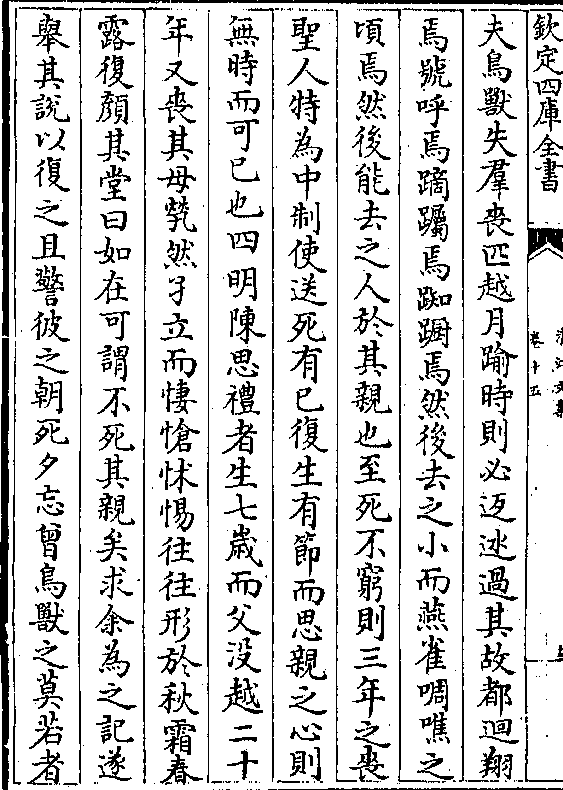 欽定四庫全書
卷十五
夫鳥獸失羣喪匹越月踰時則必返廵過其故都迴翔
焉號呼焉蹢躅焉踟躕焉然後去之小而燕雀啁噍之
頃焉然後能去之人於其親也至死不窮則三年之喪
聖人特為中制使送死有已復生有節而思親之心則
無時而可已也四明陳思禮者生七歲而父没越二十
年又喪其母煢然孑立而悽愴怵惕往往形於秋霜春
露復顔其堂曰如在可謂不死其親矣求余為之記遂
舉其説以復之且警彼之朝死夕忘曾鳥獸之莫若者